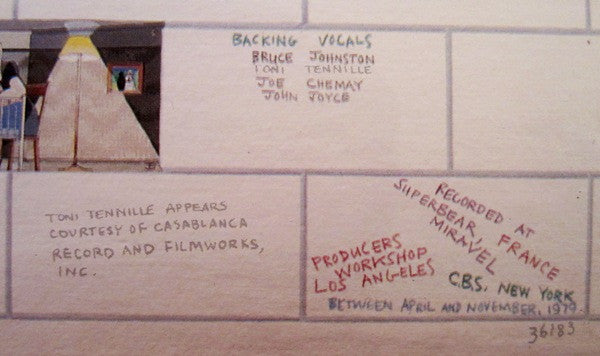 BACKING VOCALS
BRUCE JOHNSTON
TONI TENNILLE
JOE CHEMAY
JOHN JOYCE
TONI TENNILLE APPEARS
COURTESY OF CASABLANCA
RECORD AND FILMWORKS,
INC.
RECORDED AT
SUPERBEAR, FRANCE
MIRAVEL
PRODUCERS
WORKSHOP
LOS ANGELES
C.B.S. NEW YORK
BETWEEN APRIL AND NOVEMBER, 1979
36183